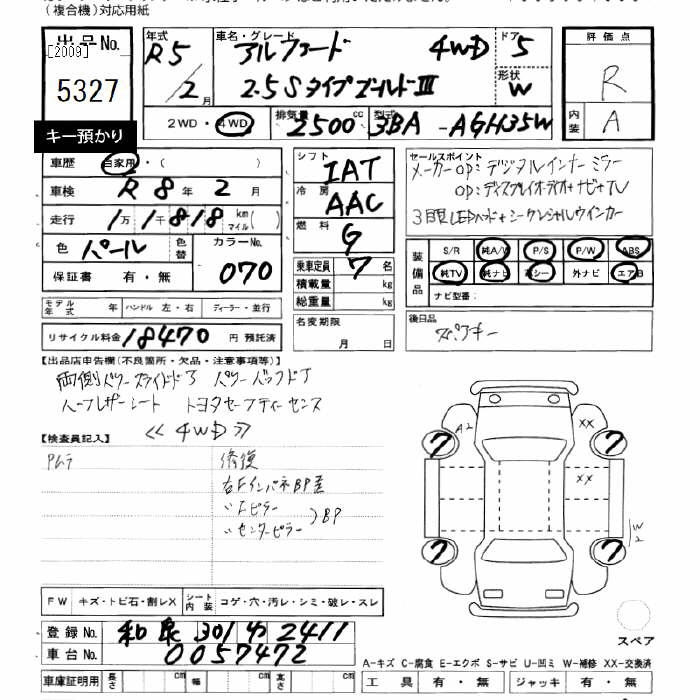 (複合機)対応用紙
出品No. [2009] 5327
キー預かり
年式 R5/2月
車名・グレード アルファード 4WD
2.5SタイプゴールドⅢ
ドア 5
形状 W
評価点 R
内装 A
2WD・4WD 排気量 2500cc 型式 3BA-AGH35W
車歴 自家用・( )
車検 R8年2月
走行 1万1千818km マイル( )
色 パール 色替 カラーNo. 070
保証書 有・無
モデル年式 年 ハンドル 左・右 ディーラー・並行
リサイクル料金 18470円 預託済
シフト IAT
冷房 AAC
燃料 G
乗車定員 7名
積載量 kg
総重量 kg
名変期限 月 日
セールスポイント
メーカーOP:デジタルインナーミラー
OP:ディスプレイオーディオ+ナビ+TV
3眼LEDヘッド+シークエンシャルウインカー
装備品 S/R 純A/W P/S P/W ABS
純TV 純ナビ 革シート 外ナビ エアB
ナビ型番:
後日品
スペアキー
【出品店申告欄(不良箇所・欠品・注意事項等)】
両側パワースライドドア パワーバックドア
ハーフレザーシート トヨタセーフティーセンス
《4WD》
【検査員記入】
修復
右FインパネBP歪
〃Fピラー
〃センターピラー 〉BP
FW キズ・トビ石・割レX シート内装 コゲ・穴・汚レ・シミ・破レ・スレ
登録No. 和泉 301 や 2411
車台No. 0057472
車庫証明用 長さ cm 幅 cm 高さ cm
7
7
7
7
A2
XX
XX
W2
スペア
A-キズ C-腐食 E-エクボ S-サビ U-凹ミ W-補修 XX-交換済
工具 有・無 ジャッキ 有・無